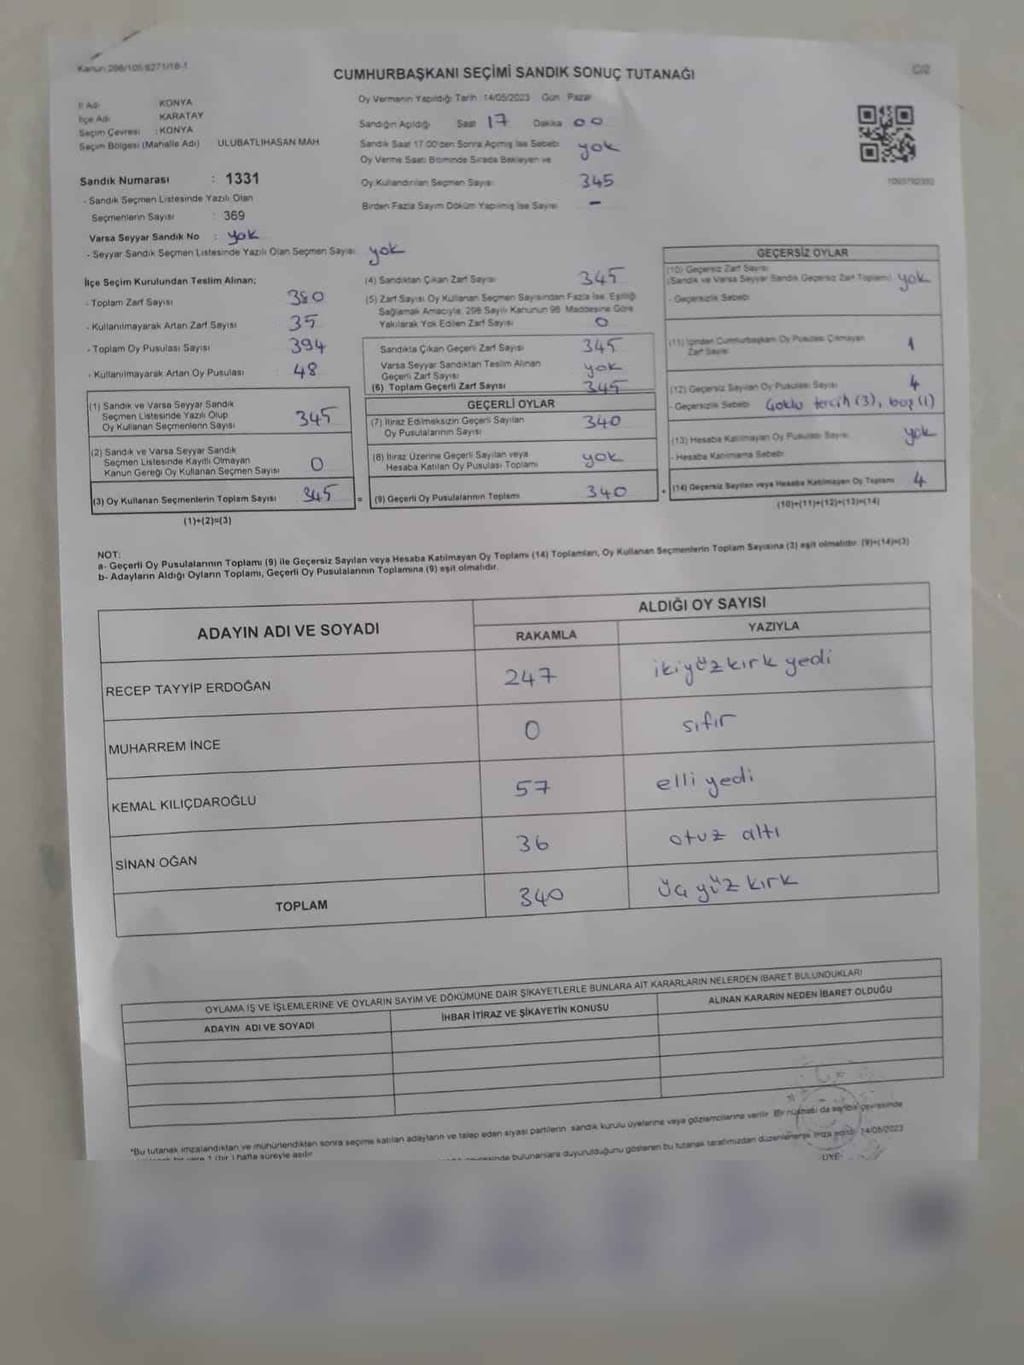 Kanun 298/105 6271/18-1
CUMHURBAŞKANI SEÇİMİ SANDIK SONUÇ TUTANAĞI
İl Adı KONYA
İlçe Adı KARATAY
Seçim Çevresi : KONYA
Seçim Bölgesi (Mahalle Adı) ULUBATLIHASAN MAH
Sandık Numarası : 1331
- Sandık Seçmen Listesinde Yazılı Olan
Seçmenlerin Sayısı : 369
Varsa Seyyar Sandık No : yok
- Seyyar Sandık Seçmen Listesinde Yazılı Olan Seçmen Sayısı yok
Oy Vermenin Yapıldığı Tarih 14/05/2023 Gün Pazar
Sandığın Açıldığı Saat 17 Dakika 00
Sandık Saat 17.00'den Sonra Açımış İse Sebebi yok
Oy Verme Saati Bitiminde Sırada Bekleyen ve
Oy Kullandırılan Seçmen Sayısı 345
Birden Fazla Sayım Döküm Yapılmış İse Sayısı –
İlçe Seçim Kurulundan Teslim Alınan;
- Toplam Zarf Sayısı 380
- Kullanılmayarak Artan Zarf Sayısı 35
- Toplam Oy Pusulası Sayısı 394
- Kullanılmayarak Artan Oy Pusulası 48
(1) Sandık ve Varsa Seyyar Sandık
Seçmen Listesinde Yazılı Olup
Oy Kullanan Seçmenlerin Sayısı 345
(2) Sandık ve Varsa Seyyar Sandık
Seçmen Listesinde Kayıtlı Olmayan
Kanun Gereği Oy Kullanan Seçmen Sayısı 0
(3) Oy Kullanan Seçmenlerin Toplam Sayısı 345
(1)+(2)=(3)
(4) Sandıktan Çıkan Zarf Sayısı 345
(5) Zarf Sayısı Oy Kullanan Seçmen Sayısından Fazla İse, Eşitliği
Sağlamak Amacıyla, 298 Sayılı Kanunun 98 Maddesine Göre
Yakılarak Yok Edilen Zarf Sayısı 0
Sandıkta Çıkan Geçerli Zarf Sayısı 345
Varsa Seyyar Sandıktan Teslim Alınan
Geçerli Zarf Sayısı yok
(6) Toplam Geçerli Zarf Sayısı 345
GEÇERLİ OYLAR
(7) İtiraz Edilmeksizin Geçerli Sayılan
Oy Pusulalarının Sayısı 340
(8) İtiraz Üzerine Geçerli Sayılan veya
Hesaba Katılan Oy Pusulası Toplamı yok
= (9) Geçerli Oy Pusulalarının Toplamı 340
GEÇERSİZ OYLAR
(10) Geçersiz Zarf Sayısı
(Sandık ve Varsa Seyyar Sandık Geçersiz Zarf Toplamı) yok
- Geçersizlik Sebebi
(11) İçinden Cumhurbaşkanı Oy Pusulası Çıkmayan
Zarf Sayısı 1
(12) Geçersiz Sayılan Oy Pusulası Sayısı 4
- Geçersizlik Sebebi Çoklu tercih (3), boş (1)
(13) Hesaba Katılmayan Oy Pusulası Sayısı yok
- Hesaba Katılmama Sebebi
+ (14) Geçersiz Sayılan veya Hesaba Katılmayan Oy Toplamı 4
(10)+(11)+(12)+(13)=(14)
NOT:
a- Geçerli Oy Pusulalarının Toplamı (9) ile Geçersiz Sayılan veya Hesaba Katılmayan Oy Toplamı (14) Toplamları, Oy Kullanan Seçmenlerin Toplam Sayısına (3) eşit olmalıdır. (9)+(14)=(3)
b- Adayların Aldığı Oyların Toplamı, Geçerli Oy Pusulalarının Toplamına (9) eşit olmalıdır.
ADAYIN ADI VE SOYADI ALDIĞI OY SAYISI
RAKAMLA YAZIYLA
RECEP TAYYİP ERDOĞAN 247 ikiyüz kırk yedi
MUHARREM İNCE 0 sıfır
KEMAL KILIÇDAROĞLU 57 elli yedi
SİNAN OĞAN 36 otuz altı
TOPLAM 340 üç yüz kırk
OYLAMA İŞ VE İŞLEMLERİNE VE OYLARIN SAYIM VE DÖKÜMÜNE DAİR ŞİKAYETLERLE BUNLARA AİT KARARLARIN NELERDEN İBARET BULUNDUKLARI
ADAYIN ADI VE SOYADI İHBAR İTİRAZ VE ŞİKAYETİN KONUSU ALINAN KARARIN NEDEN İBARET OLDUĞU
*Bu tutanak imzalandıktan ve mühürlendikten sonra seçime katılan adayların ve talep eden siyasi partilerin sandık kurulu üyelerine veya gözlemcilerine verilir. Bir nüshası da sandık çevresinde
1 (bir) hafta süreyle asılır. bulunanlara duyurulduğunu gösteren bu tutanak tarafımızdan düzenlenerek imza edildi. 14/05/2023
ÜYE